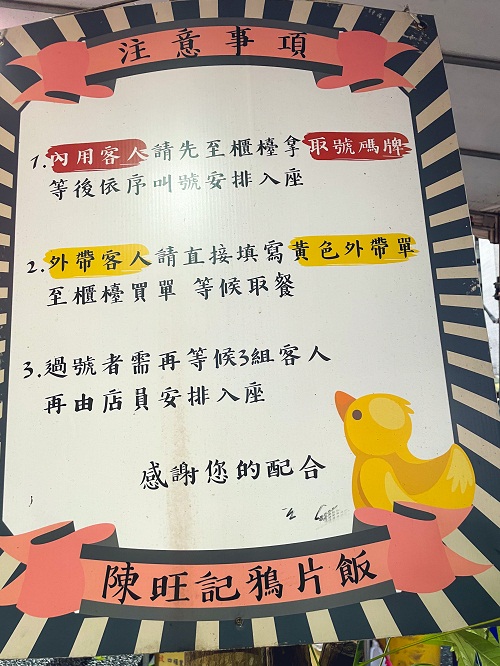 注意事項
1.內用客人請先至櫃檯拿取號碼牌
等後依序叫號安排入座
2.外帶客人請直接填寫黃色外帶單
至櫃檯買單 等候取餐
3.過號者需再等候3組客人
再由店員安排入座
感謝您的配合
陳旺記鴉片飯